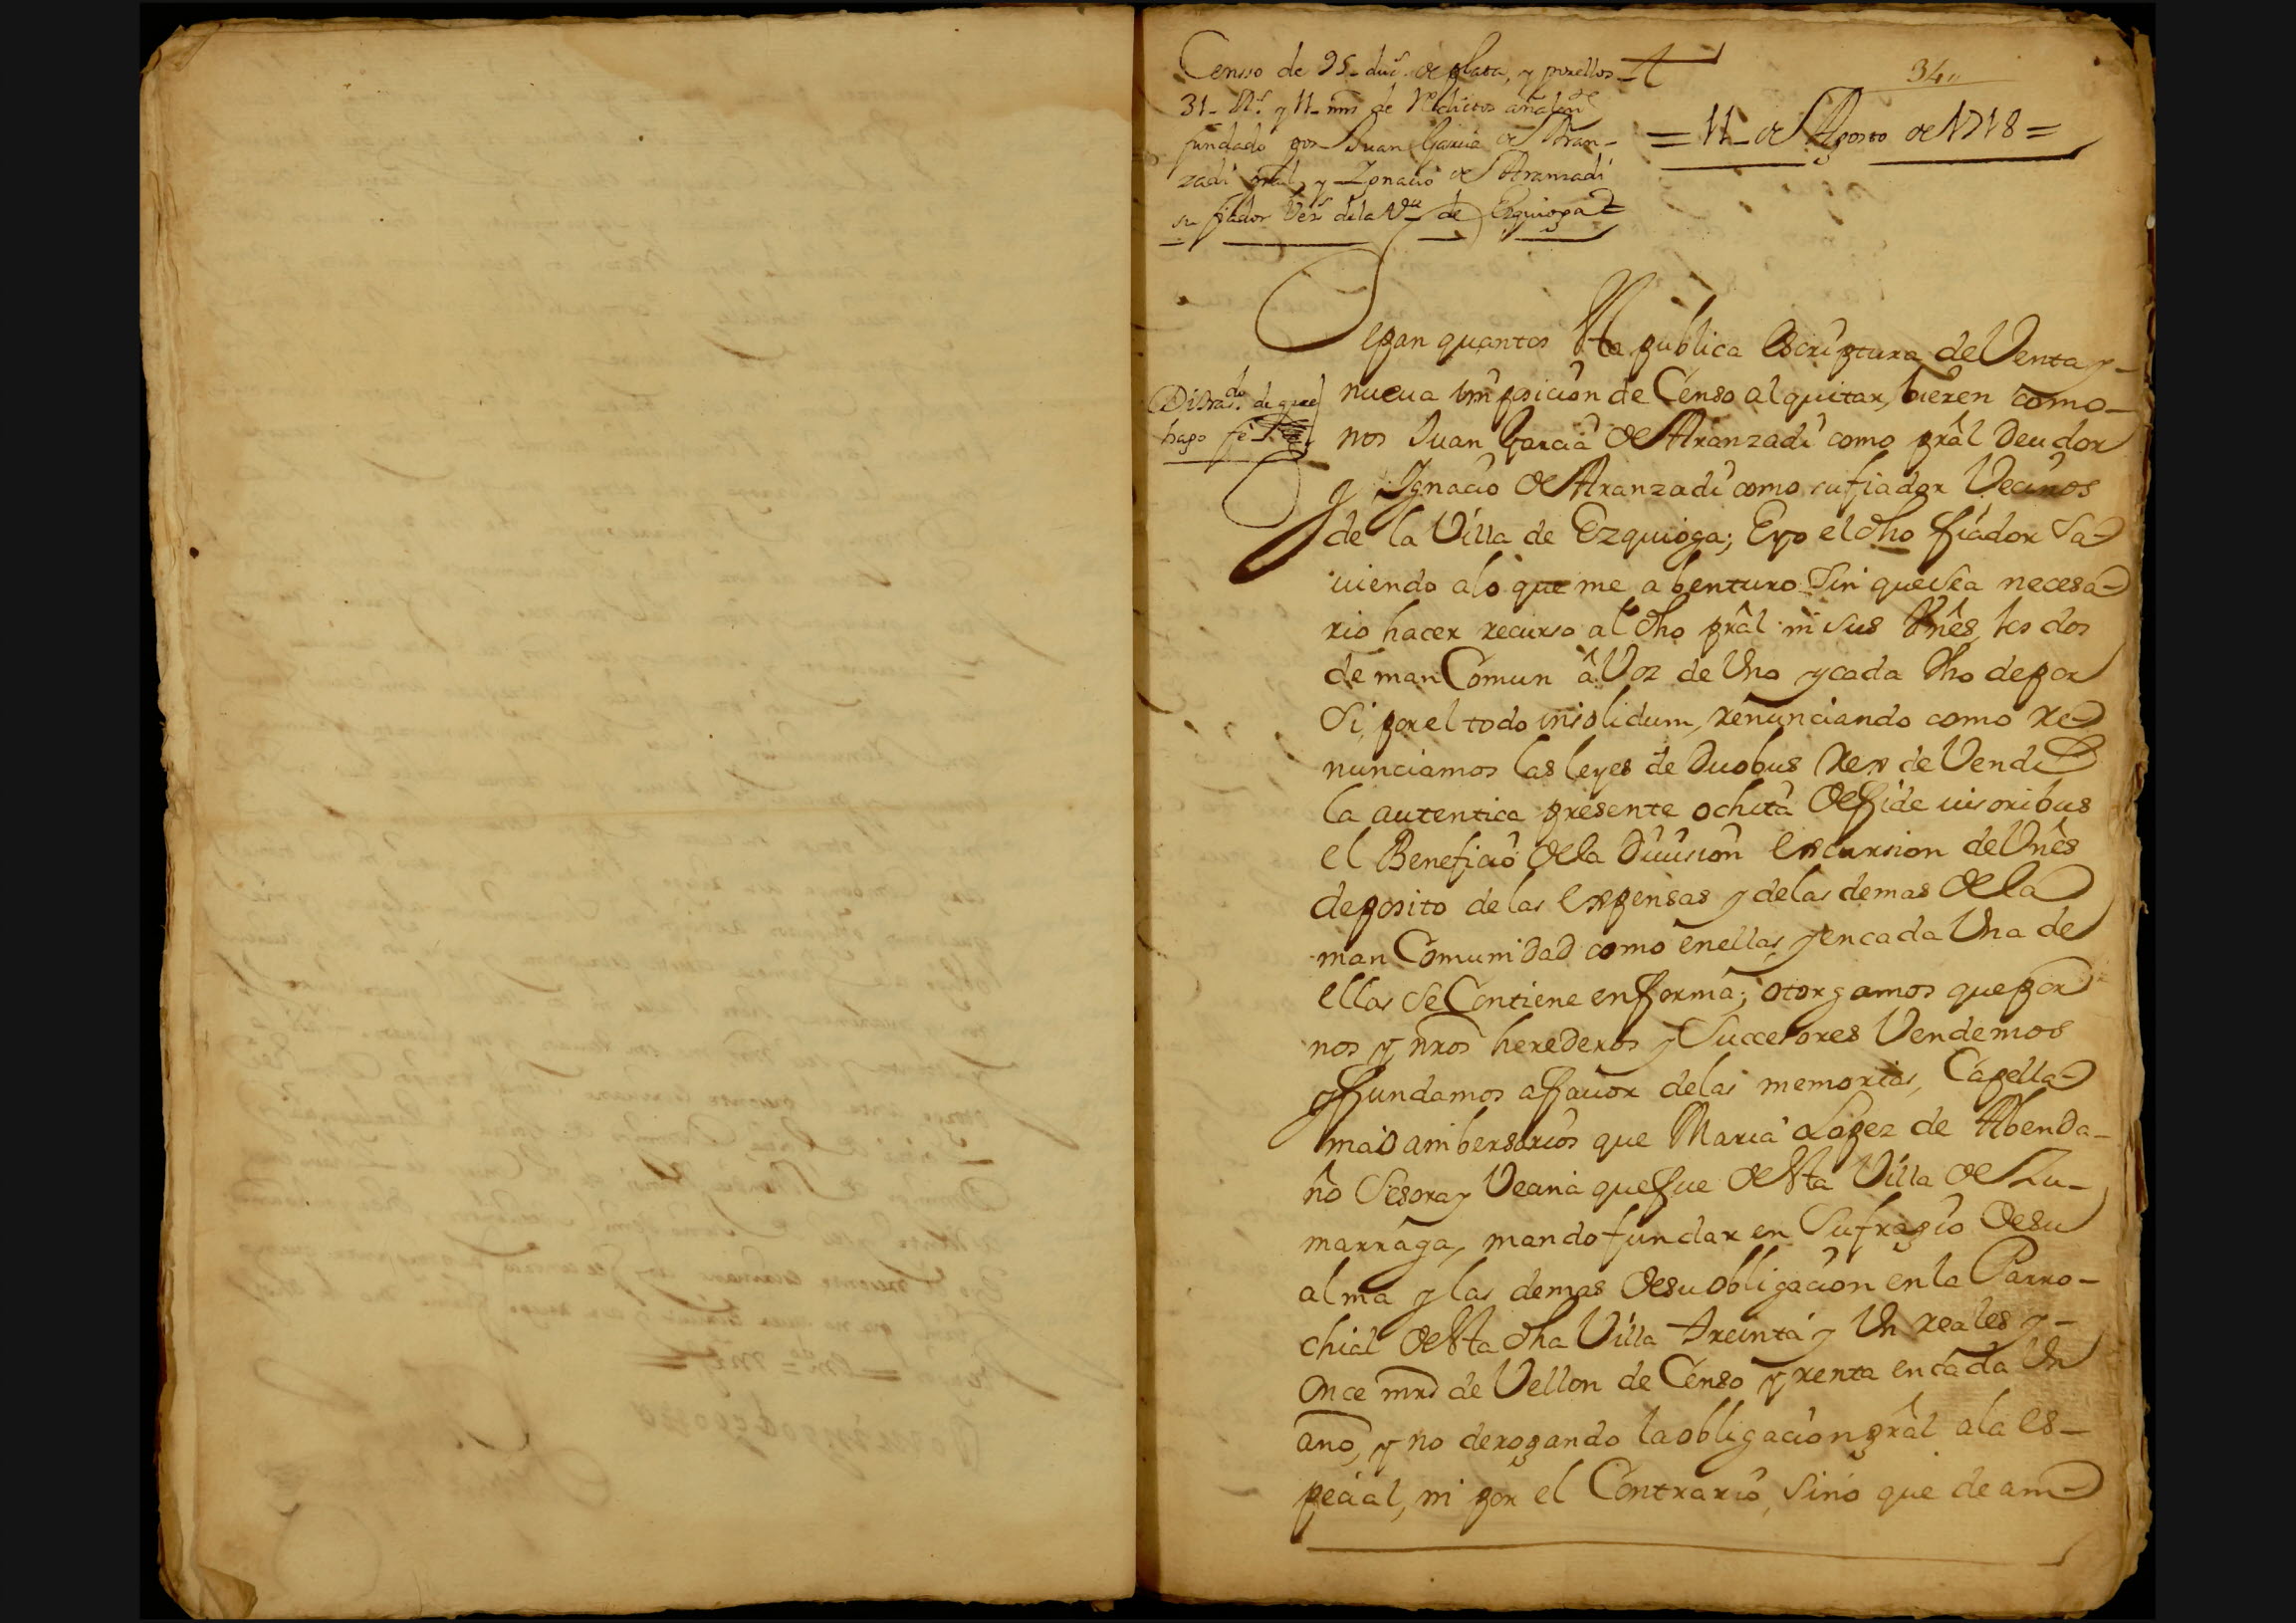 Censso de 95 duc.s de plata, y por ellos
31 R.s y 11 mrs de Reditos añales
fundado por Juan Garcia de Aran-
zadi pral, y Ignacio de Aranzadi
su fiador Vez.s de la V.a de Ezquioga
34
= 11 de Agosto de 1718 =
Sepan quantos esta publica escriptura de Venta y
nueua imposicion de Censo al quitar, bieren como
nos Juan Garcia de Aranzadi como pral Deudor
y Ignacio de Aranzadi como su fiador Vecinos
de la Villa de Ezquioga; E yo el dho fiador Sa-
uiendo a lo que me abenturo Sin que sea necesa-
rio hacer recurso al dho pral ni sus Vnes, los dos
de man Comun â Voz de Vno y cada Vno de por
Si, por el todo insolidum, renunciando como re-
nunciamos las leyes de Duobus Rex de Vendi
la autentica presente ochita de fide iusoribus
el Beneficio de la Diuision Excursion de Vnes
deposito de las Expensas y de las demas de la
man Comunidad como en ellas, y en cada Vna de
ellas Se Contiene en forma; otorgamos que por
nos y nros herederos y Successores Vendemos
y fundamos a fauor de las memorias, Capella-
nias anibersarios que Maria Lopez de Abenda-
ño Sesora y Vecina que fue desta Villa de Zu-
marraga, mando fundar en Sufragio de su
alma y las demas de su obligacion en la Parro-
chial desta dha Villa treinta y Un reales y
Once mrs de Vellon de Censo y renta en cada Un
año, y no derogando la obligacion gral a la es-
pecial, ni por el Contrario, Sino que de am
Disra.do de que
hago fe